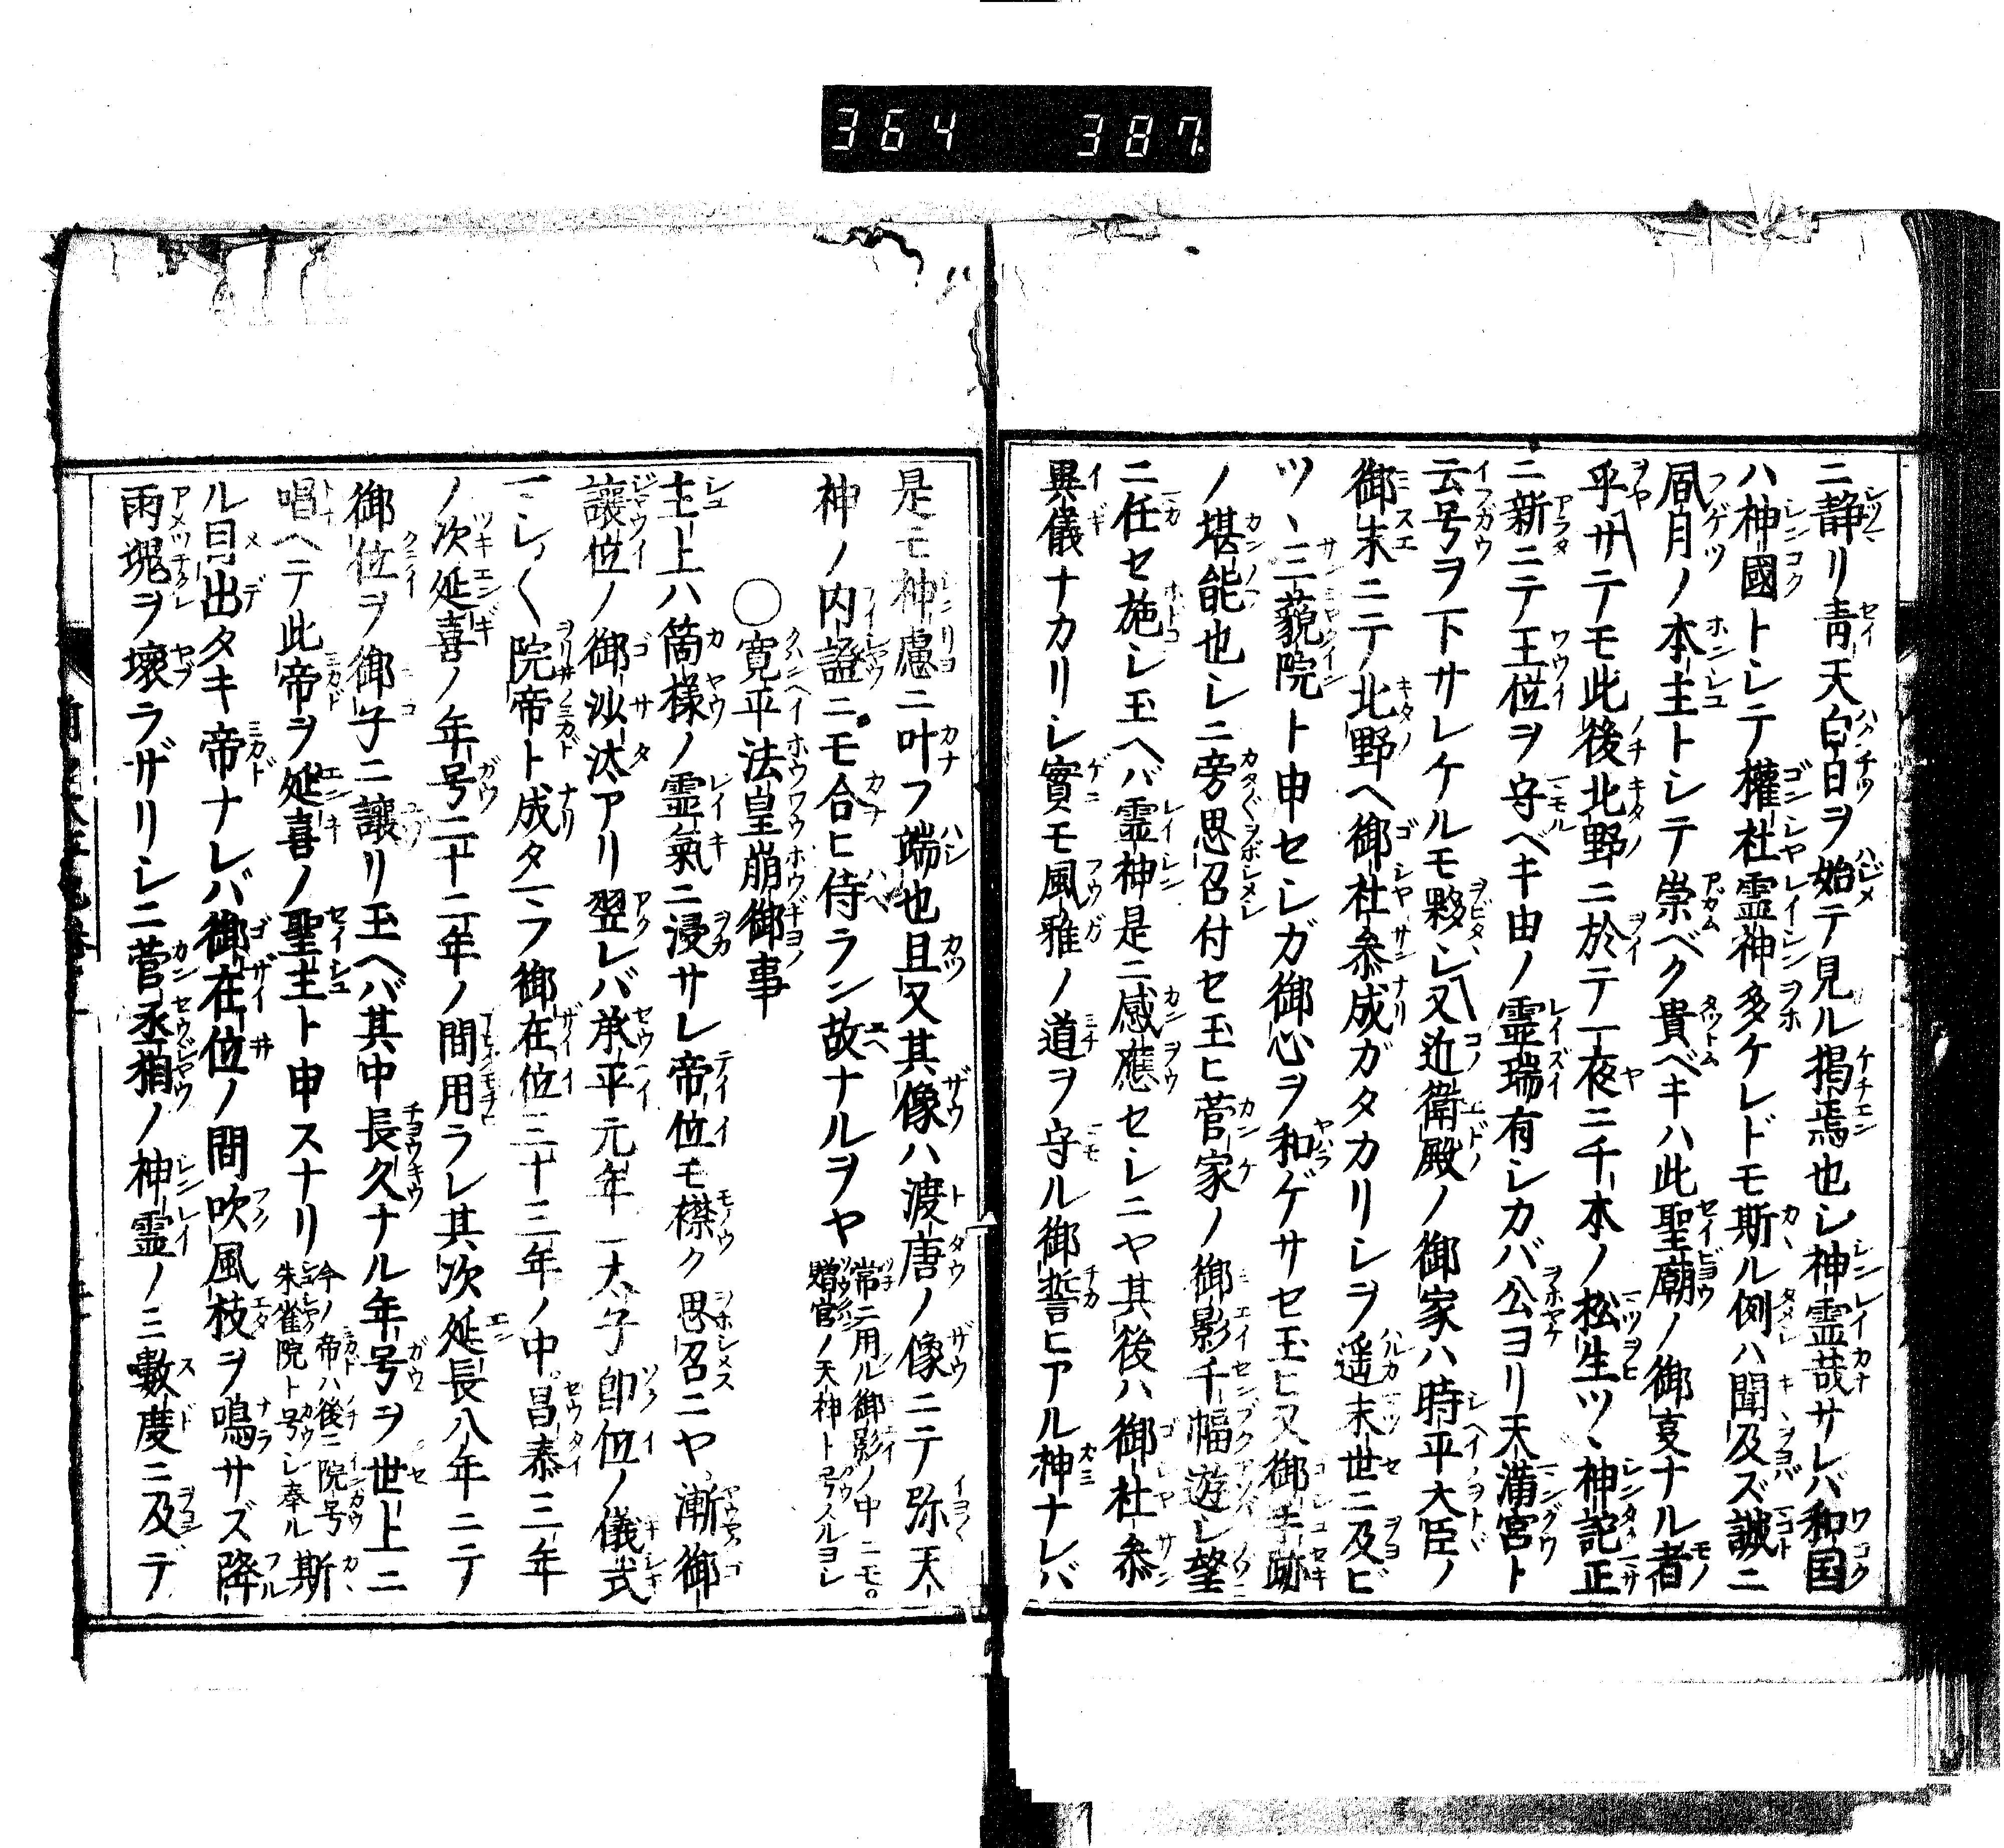 364 387
ニ静リ青天白日ヲ始テ見ル掲焉也シ神霊哉サレバ和国
ハ神國トシテ權社霊神多ケレドモ斯ル例ハ聞及ズ誠ニ
風月ノ本主トシテ崇ベク貴ベキハ此聖廟ノ御叓ナル者
乎サテモ此後北野ニ於テ一夜ニ千本ノ松生ツヽ神託正
ニ新ニテ王位ヲ守ベキ由ノ霊瑞有シカバ公ヨリ天満宮ト
云号ヲ下サレケルモ夥シ又近衛殿ノ御家ハ時平大臣ノ
御末ニテ北野ヘ御社参成ガタカリシヲ遥末世ニ及ビ
ツヽ三藐院ト申セシガ御心ヲ和ゲサセ玉ヒ又御手跡
ノ堪能也シニ旁思召付セ玉ヒ菅家ノ御影千幅遊シ望
ニ任セ施シ玉ヘバ霊神是ニ感應セシニヤ其後ハ御社参
異儀ナカリシ實モ風雅ノ道ヲ守ル御誓ヒアル神ナレバ
是モ神慮ニ叶フ端也且又其像ハ渡唐ノ像ニテ弥天
神ノ内證ニモ合ヒ侍ラン故ナルヲヤ 常ニ用ル御影ノ中ニモ。贈官ノ天神ト号スルヨシ
〇寛平法皇崩御事
主上ハ箇様ノ霊氣ニ浸サレ帝位モ襟ク思召ニヤ漸御
譲位ノ御沙汰アリ翌レバ承平元年太子即位ノ儀式
院帝ト成タマフ御在位三十三年ノ中昌泰三年
ノ次延喜ノ年号二十二年ノ間用ラレ其次延長八年ニテ
御位ヲ御子ニ讓リ玉ヘバ其中長久ナル年号ヲ世上ニ
唱ヘテ此帝ヲ延喜ノ聖主ト申スナリ 今ノ帝ハ後ニ院号朱雀院ト号シ奉ル 斯
ル目出タキ帝ナレバ御在位ノ間吹風枝ヲ鳴サズ降
雨塊ヲ壊ラザリシニ菅丞相ノ神霊ノミ數度ニ及デ